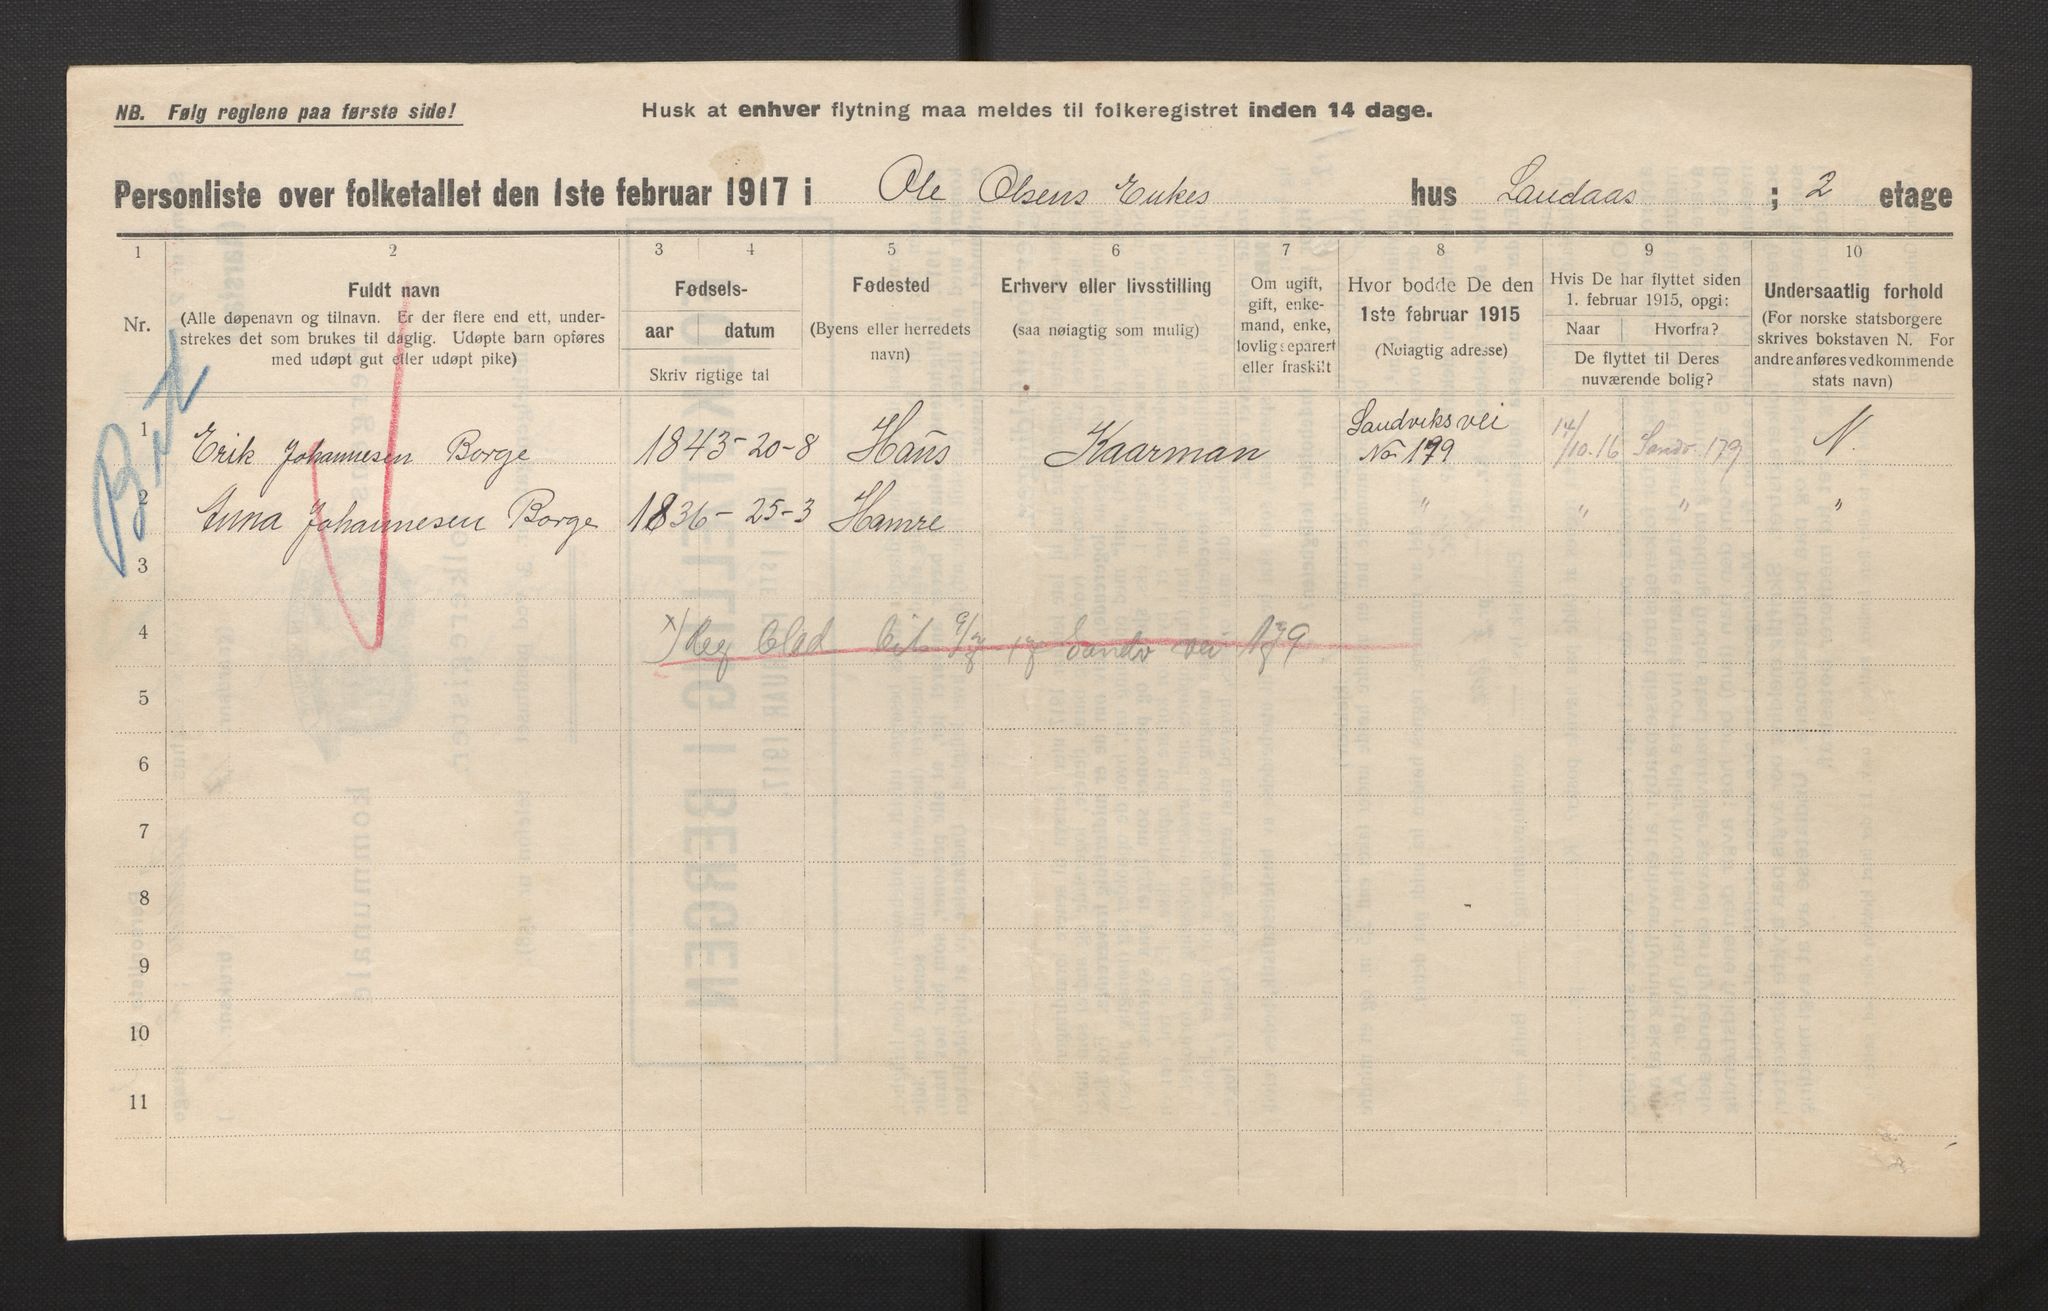 NB. Følg reglene paa første side!
Husk at enhver flytning maa meldes til folkeregistret inden 14 dage.
Personliste over folketallet den 1ste februar 1917 i Ole Olsens Enkes hus Landaas ; 2 etage
1 2 3 4 5 6 7 8 9 10
Nr.
Fuldt navn
(Alle døpenavn og tilnavn. Er der flere end ett, under-
strekes det som brukes til daglig. Udøpte barn opføres
med udøpt gut eller udøpt pike)
Fødsels-
aar datum
Skriv rigtige tal
Fødested
(Byens eller herredets
navn)
Erhverv eller livsstilling
(saa nøiagtig som mulig)
Om ugift,
gift, enke-
mand, enke,
lovlig separert
eller fraskilt
Hvor bodde De den
1ste februar 1915
(Nøiagtig adresse)
Hvis De har flyttet siden
1. februar 1915, opgi:
Naar Hvorfra?
De flyttet til Deres
nuværende bolig?
Undersaatlig forhold
(For norske statsborgere
skrives bokstaven N. For
andre anføres vedkommende
stats navn)
1 Erik Johannesen Borge 1843 - 20-8 Haus Kaarman Sandviksvei
No 179 14/10.16 Sandv. 179 N.
2 Anna Johannesen Borge 1836 - 25-3 Hamre " " " "
3
4 x) Sandv vei 179
5
6
7
8
9
10
11